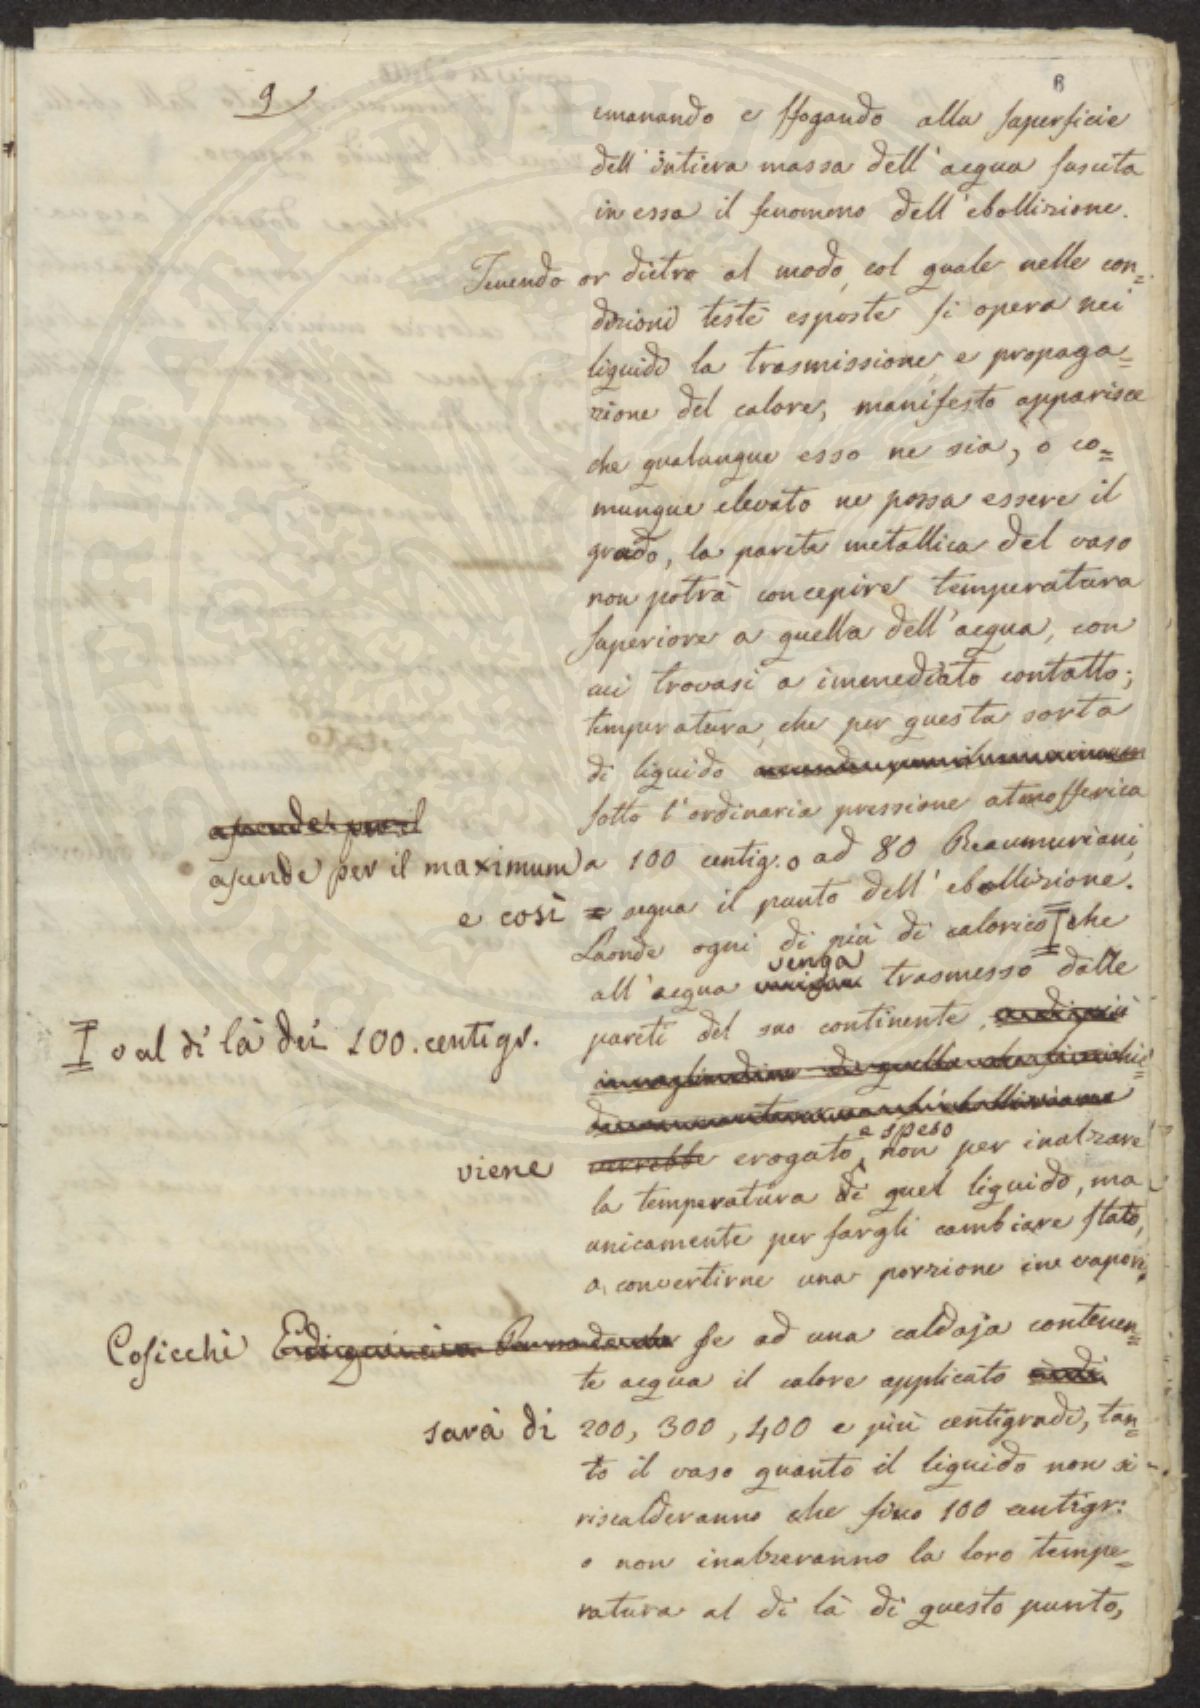 9
emanando e sfogando alla superficie
dell'intiera massa dell'acqua suscita
in essa il fenomeno dell'ebollizione.
Tenendo or dietro al modo, col quale nelle con=
dizioni testè esposte si opera nei
liquidi la trasmissione, e propaga=
zione del calore, manifesto apparisce
che qualunque esso ne sia, o co=
munque elevato ne possa essere il
grado, la parete metallica del vaso
non potrà concepire temperatura
superiore a quella dell'acqua, con
cui trovasi a immediato contatto;
temperatura, che per questa sorta
di liquido
sotto l'ordinaria pressione atmosferica
ascende per il
ascende per il maximum a 100 centig. o ad 80 Reaumuriani,
e così = segna il punto dell'ebollizione.
Laonde ogni di più di calorico I che
all'acqua venga trasmesso dalle
I o al di là dei 100. centigr.
pareti del suo continente,
viene verrebbe erogato e speso non per inalzare
la temperatura di quel liquido, ma
unicamente per fargli cambiare stato,
a convertirne una porzione in vapori,
Cosicchè se ad una caldaja contenen=
te acqua il calore applicato
sarà di 200, 300, 400 e più centigradi, tan=
to il vaso quanto il liquido non si
riscalderanno che fino 100 centigr:
o non inalzeranno la loro tempe=
ratura al di là di questo punto,